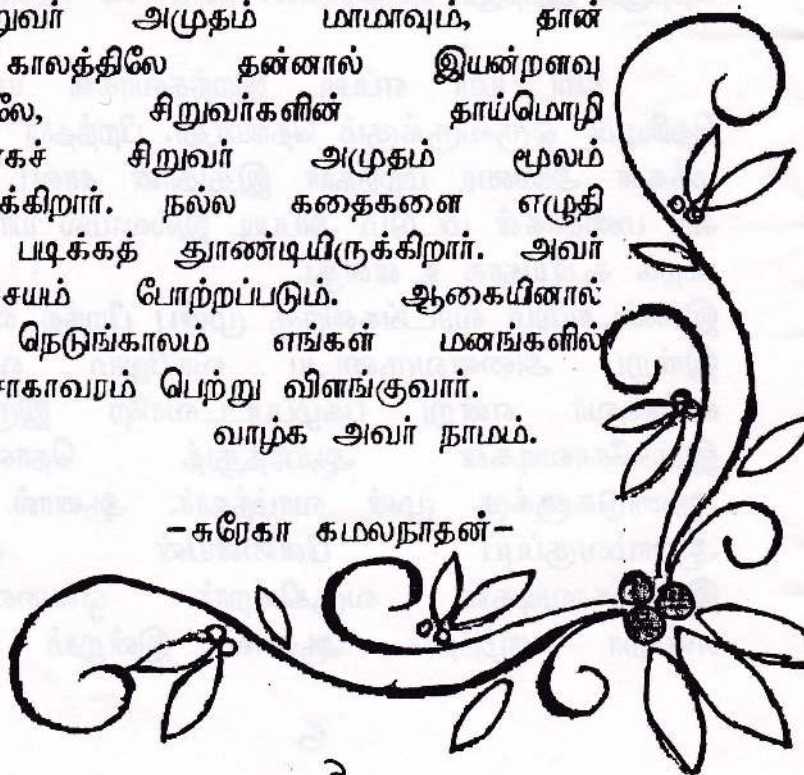 அமுதம் மாமாவும், தான்
காலத்திலே தன்னால் இயன்றளவு
சிறுவர்களின் தாய்மொழி
சிறுவர் அமுதம் மூலம்
நல்ல கதைகளை எழுதி
படிக்கத் தூண்டியிருக்கிறார். அவர்
போற்றப்படும். ஆகையினால்
நெடுங்காலம் எங்கள் மனங்களில்
சாகாவரம் பெற்று விளங்குவார்.
வாழ்க அவர் நாமம்.
-சுரேகா கமலநாதன்-